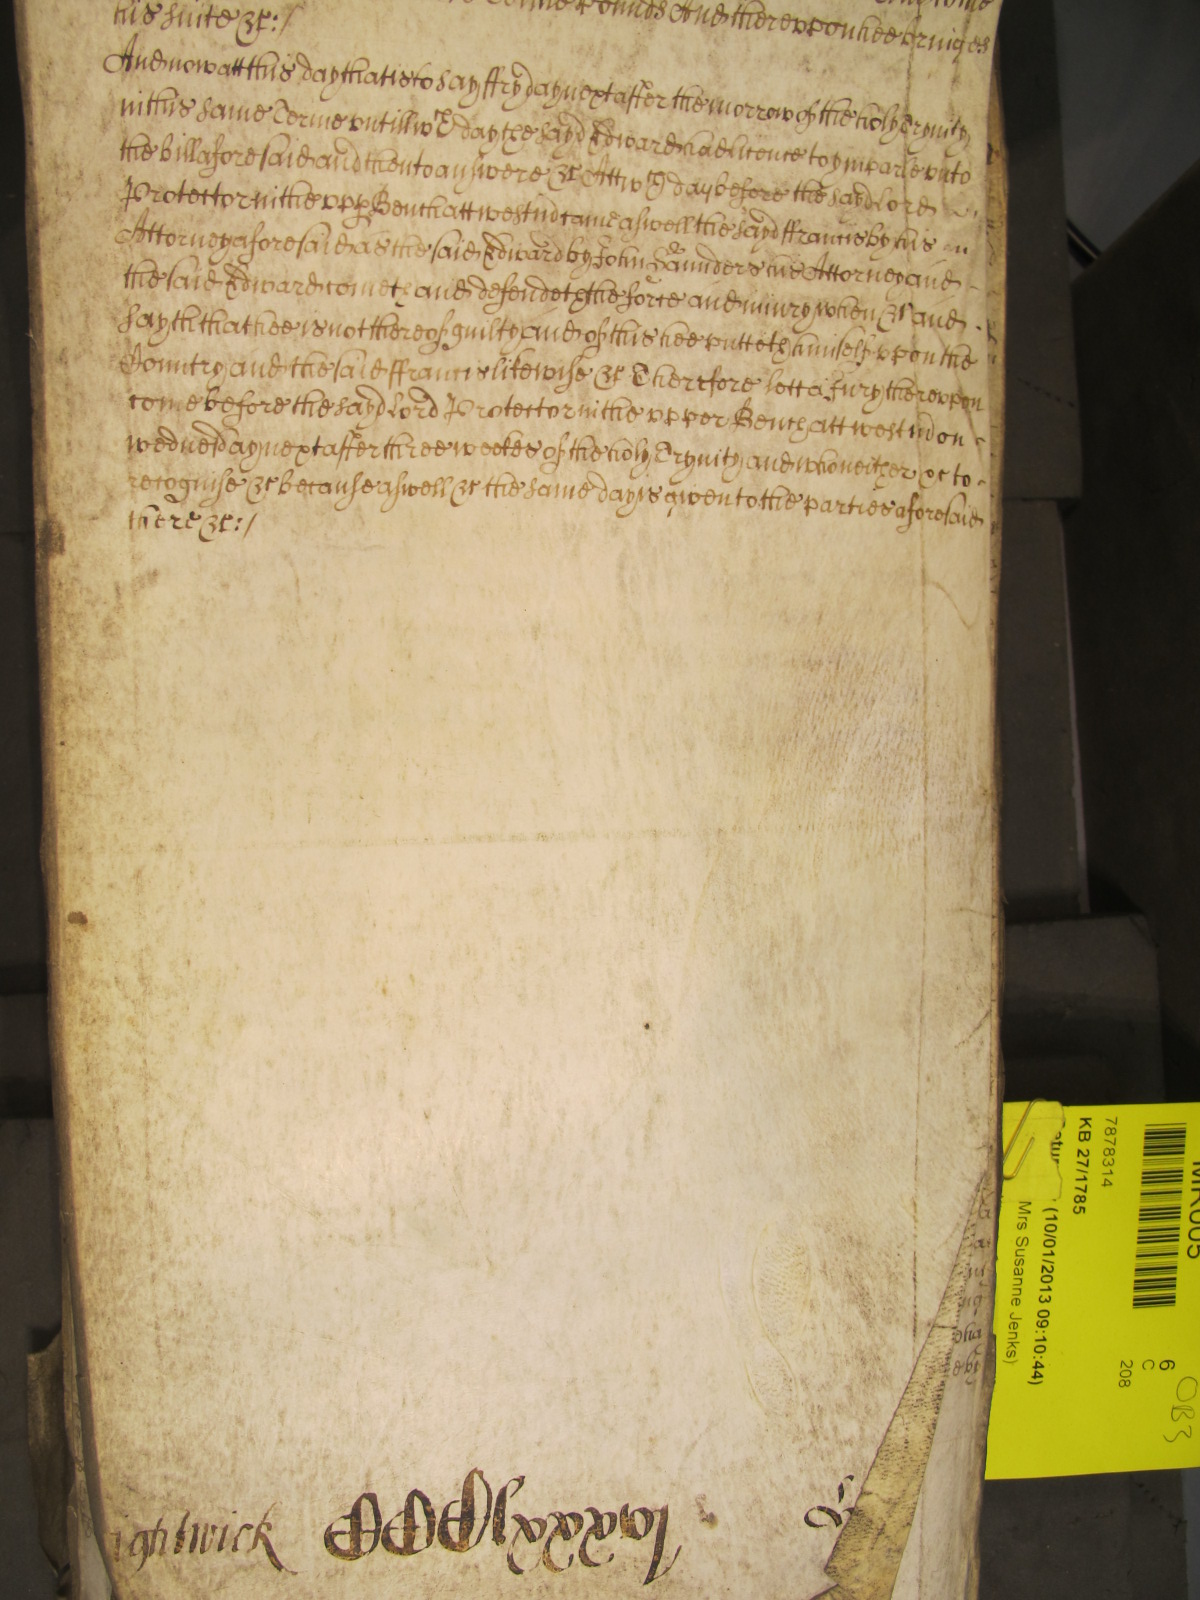 Pounds And thereuppon hee bringes
his suite &c:/
And now att this day that is to say ffryday next after the morrow of the holy Trynity
in this same Terme untill wch day the sayd Edward had licence to ymparle unto
the bill aforesaid and then to answere &c Att wch day before the sayd Lord
Protector in the upp Bench att westm came aswell the sayd ffrancis by his
Attorney aforesaid as the said Edward by John Saunders his Attorney and
the said Edward cometh and defendeth the force and iniury when &c and
sayth that hee is not thereof guilty and of this hee putteth himself uppon the
Country and the said ffrancis likewise &c Therefore lett a Jury thereuppon
come before the sayd Lord Protector in the upper Bench att westm on
wednesday next after three weekes of the holy Trynity and who neither &c to
recognise &c because aswell &c the same day is given to the parties aforesaid
there &c:/
7878314
KB 27/1785
(10/01/2013 09:10:44)
Mrs Susanne Jenks)
6
C
208
OB3